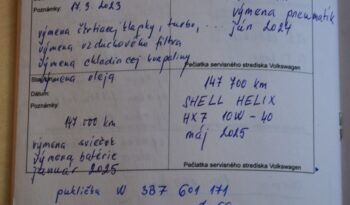 Poznámky: 14.9.2023
výmena škrtiacej klapky, turbo, ...
výmena vzduchového filtra
výmena chladiacej kvapaliny
výmena oleja
výmena pneumatík
jún 2024
Pečiatka servisného strediska Volkswagen
Dátum:
Poznámky:
147 500 km
výmena sviečok
výmena batérie
január 2025
147 700 km
SHELL HELIX
HX7 10W-40
máj 2025
Pečiatka servisného strediska Volkswagen
puklička W 3B7 601 171